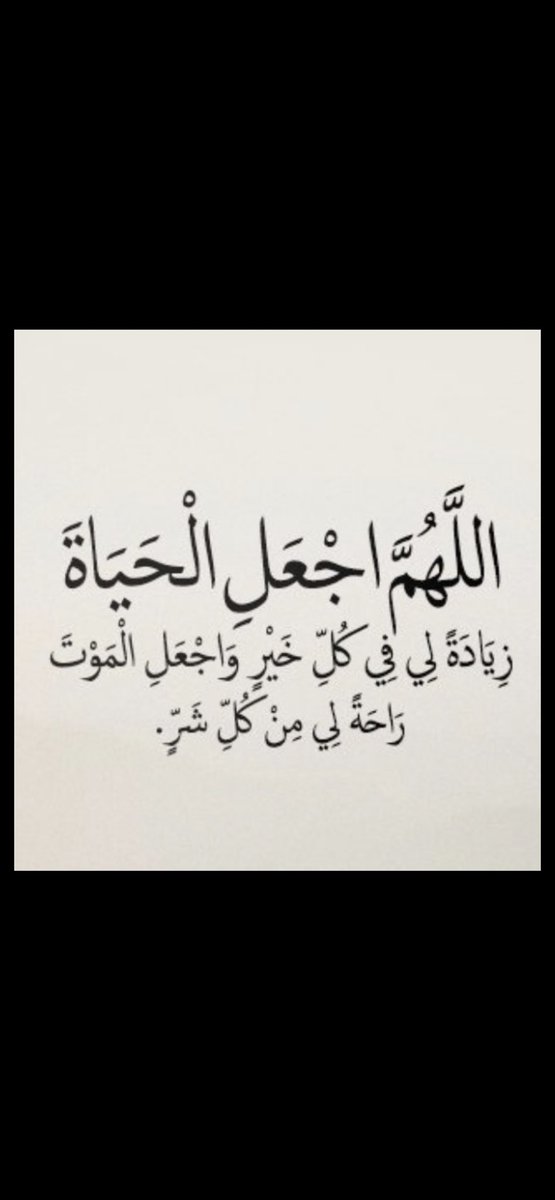 اللَّهُمَّ اجْعَلِ الْحَيَاةَ
زِيَادَةً لِي فِي كُلِّ خَيْرٍ وَاجْعَلِ الْمَوْتَ
رَاحَةً لِي مِنْ كُلِّ شَرٍّ.